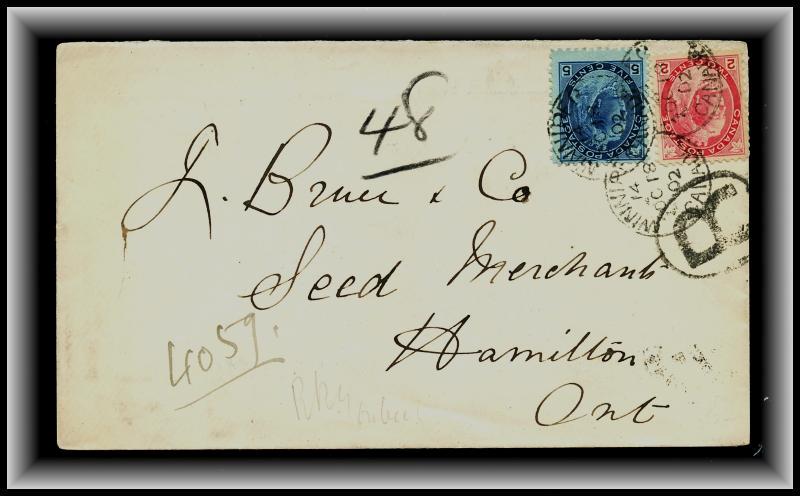 48
J. Bruce & Co
Seed Merchants
Hamilton
Ont
4059.
5 FIVE CENTS 5
CANADA POSTAGE
2 TWO CENTS 2
CANADA POSTAGE
WINNIPEG
14
OC 18
02
CANADA
R